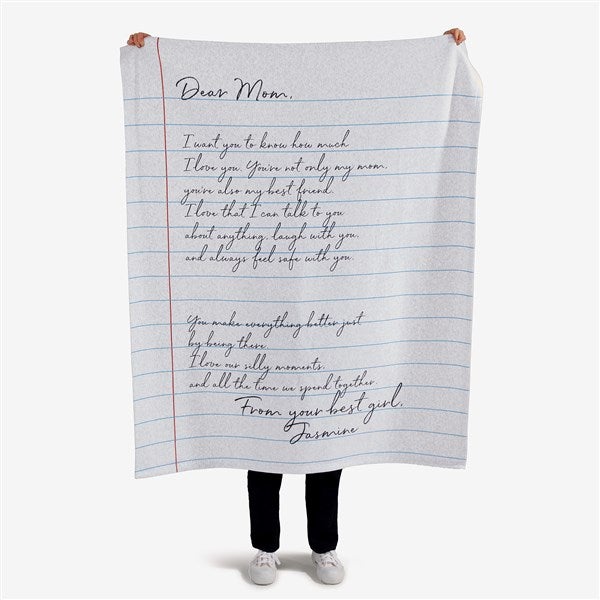 Dear Mom,
I want you to know how much
I love you. You're not only my mom,
you're also my best friend.
I love that I can talk to you
about anything, laugh with you,
and always feel safe with you.
You make everything better just
by being there.
I love our silly moments,
and all the time we spend together.
From your best girl,
Jasmine